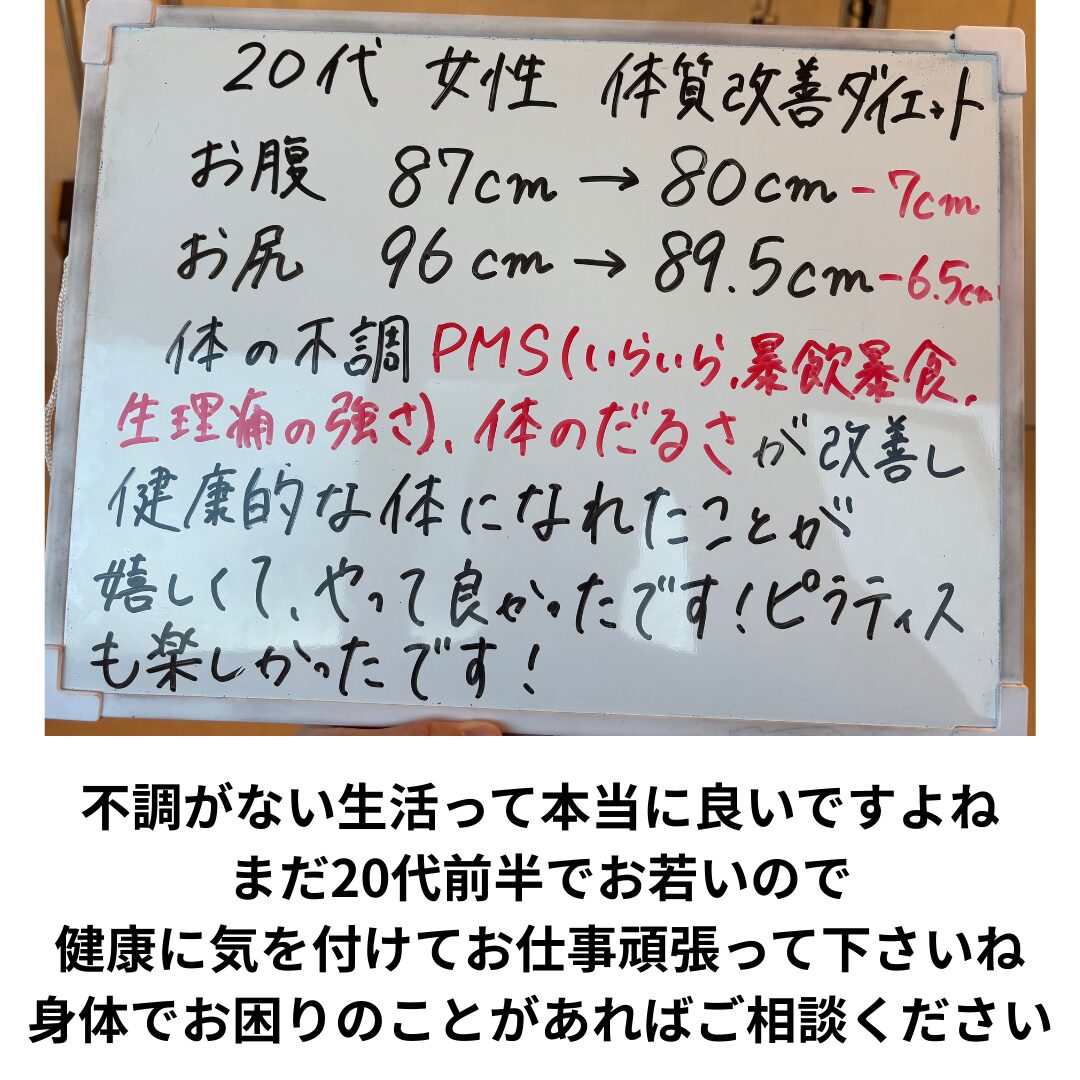 20代 女性 体質改善ダイエット
お腹 87cm → 80cm -7cm
お尻 96cm → 89.5cm -6.5cm
体の不調 PMS(いらいら、暴飲暴食、
生理痛の強さ)、体のだるさが改善し
健康的な体になれたことが
嬉しくて、やって良かったです!ピラティス
も楽しかったです!
不調がない生活って本当に良いですよね
まだ20代前半でお若いので
健康に気を付けてお仕事頑張って下さいね
身体でお困りのことがあればご相談ください